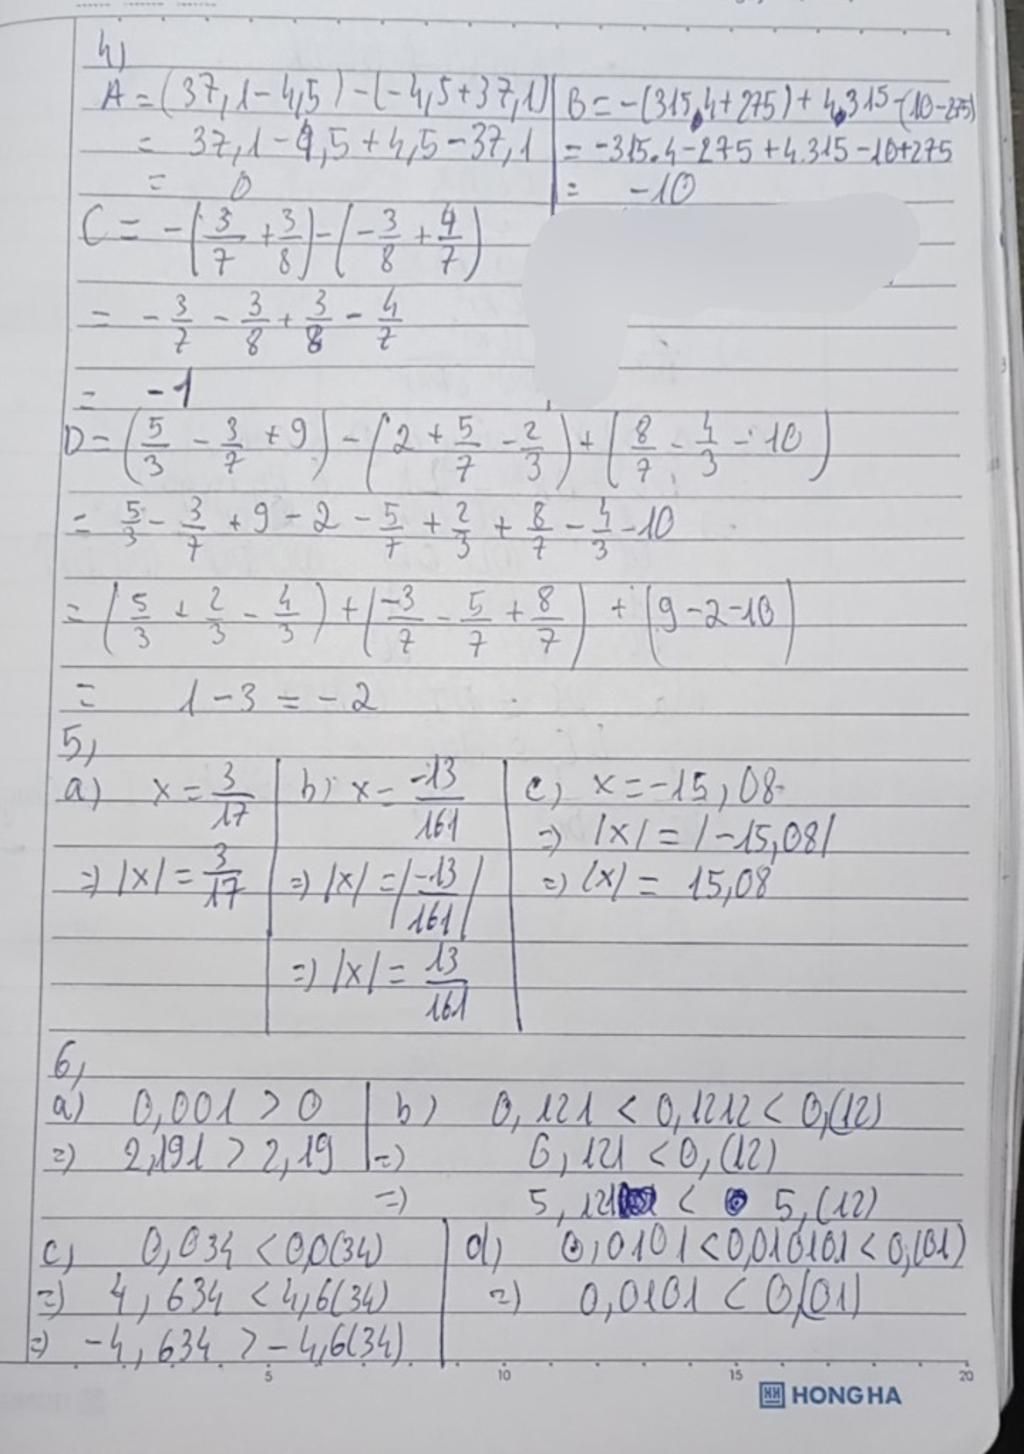 4)
A = (37,1 - 4,5) - (-4,5 + 37,1)
= 37,1 - 4,5 + 4,5 - 37,1
= 0
B = -(315.4 + 275) + 4.315 - (10 - 275)
= -315.4 - 275 + 4.315 - 10 + 275
= -10
C = -(3/7 + 3/8) - (-3/8 + 4/7)
= -3/7 - 3/8 + 3/8 - 4/7
= -1
D = (5/3 - 3/7 + 9) - (2 + 5/7 - 2/3) + (8/7 - 4/3 - 10)
= 5/3 - 3/7 + 9 - 2 - 5/7 + 2/3 + 8/7 - 4/3 - 10
= (5/3 + 2/3 - 4/3) + (-3/7 - 5/7 + 8/7) + (9 - 2 - 10)
= 1 - 3 = -2
5,
a) x = 3/17
=> |x| = 3/17
b) x = -13/161
=> |x| = |-13/161|
=> |x| = 13/161
c) x = -15,08
=> |x| = |-15,08|
=> |x| = 15,08
6,
a) 0,001 > 0
=> 2,191 > 2,19
b) 0,121 < 0,1212 < 0,(12)
=> 0,121 < 0,(12)
=> 5,121 < 5,(12)
c) 0,034 < 0,0(34)
=> 4,634 < 4,6(34)
=> -4,634 > -4,6(34)
d) 0,0101 < 0,010101 < 0,(01)
=> 0,0101 < 0,(01)
5 10 15 20
HH HONG HA